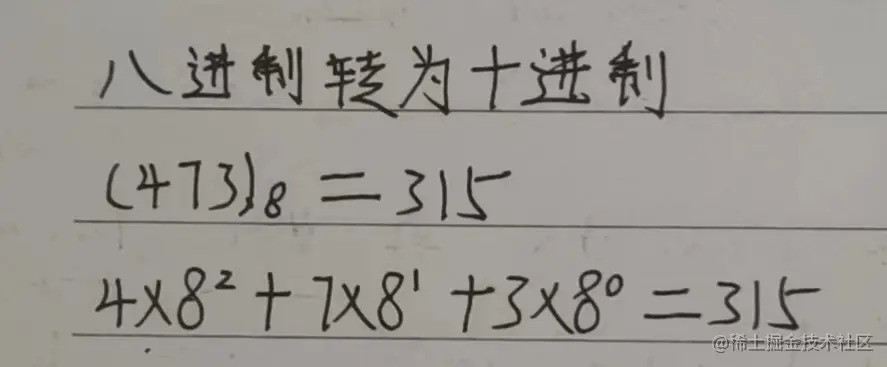 八进制转为十进制
(473)₈ = 315
4×8² + 7×8¹ + 3×8⁰ = 315
@稀土掘金技术社区